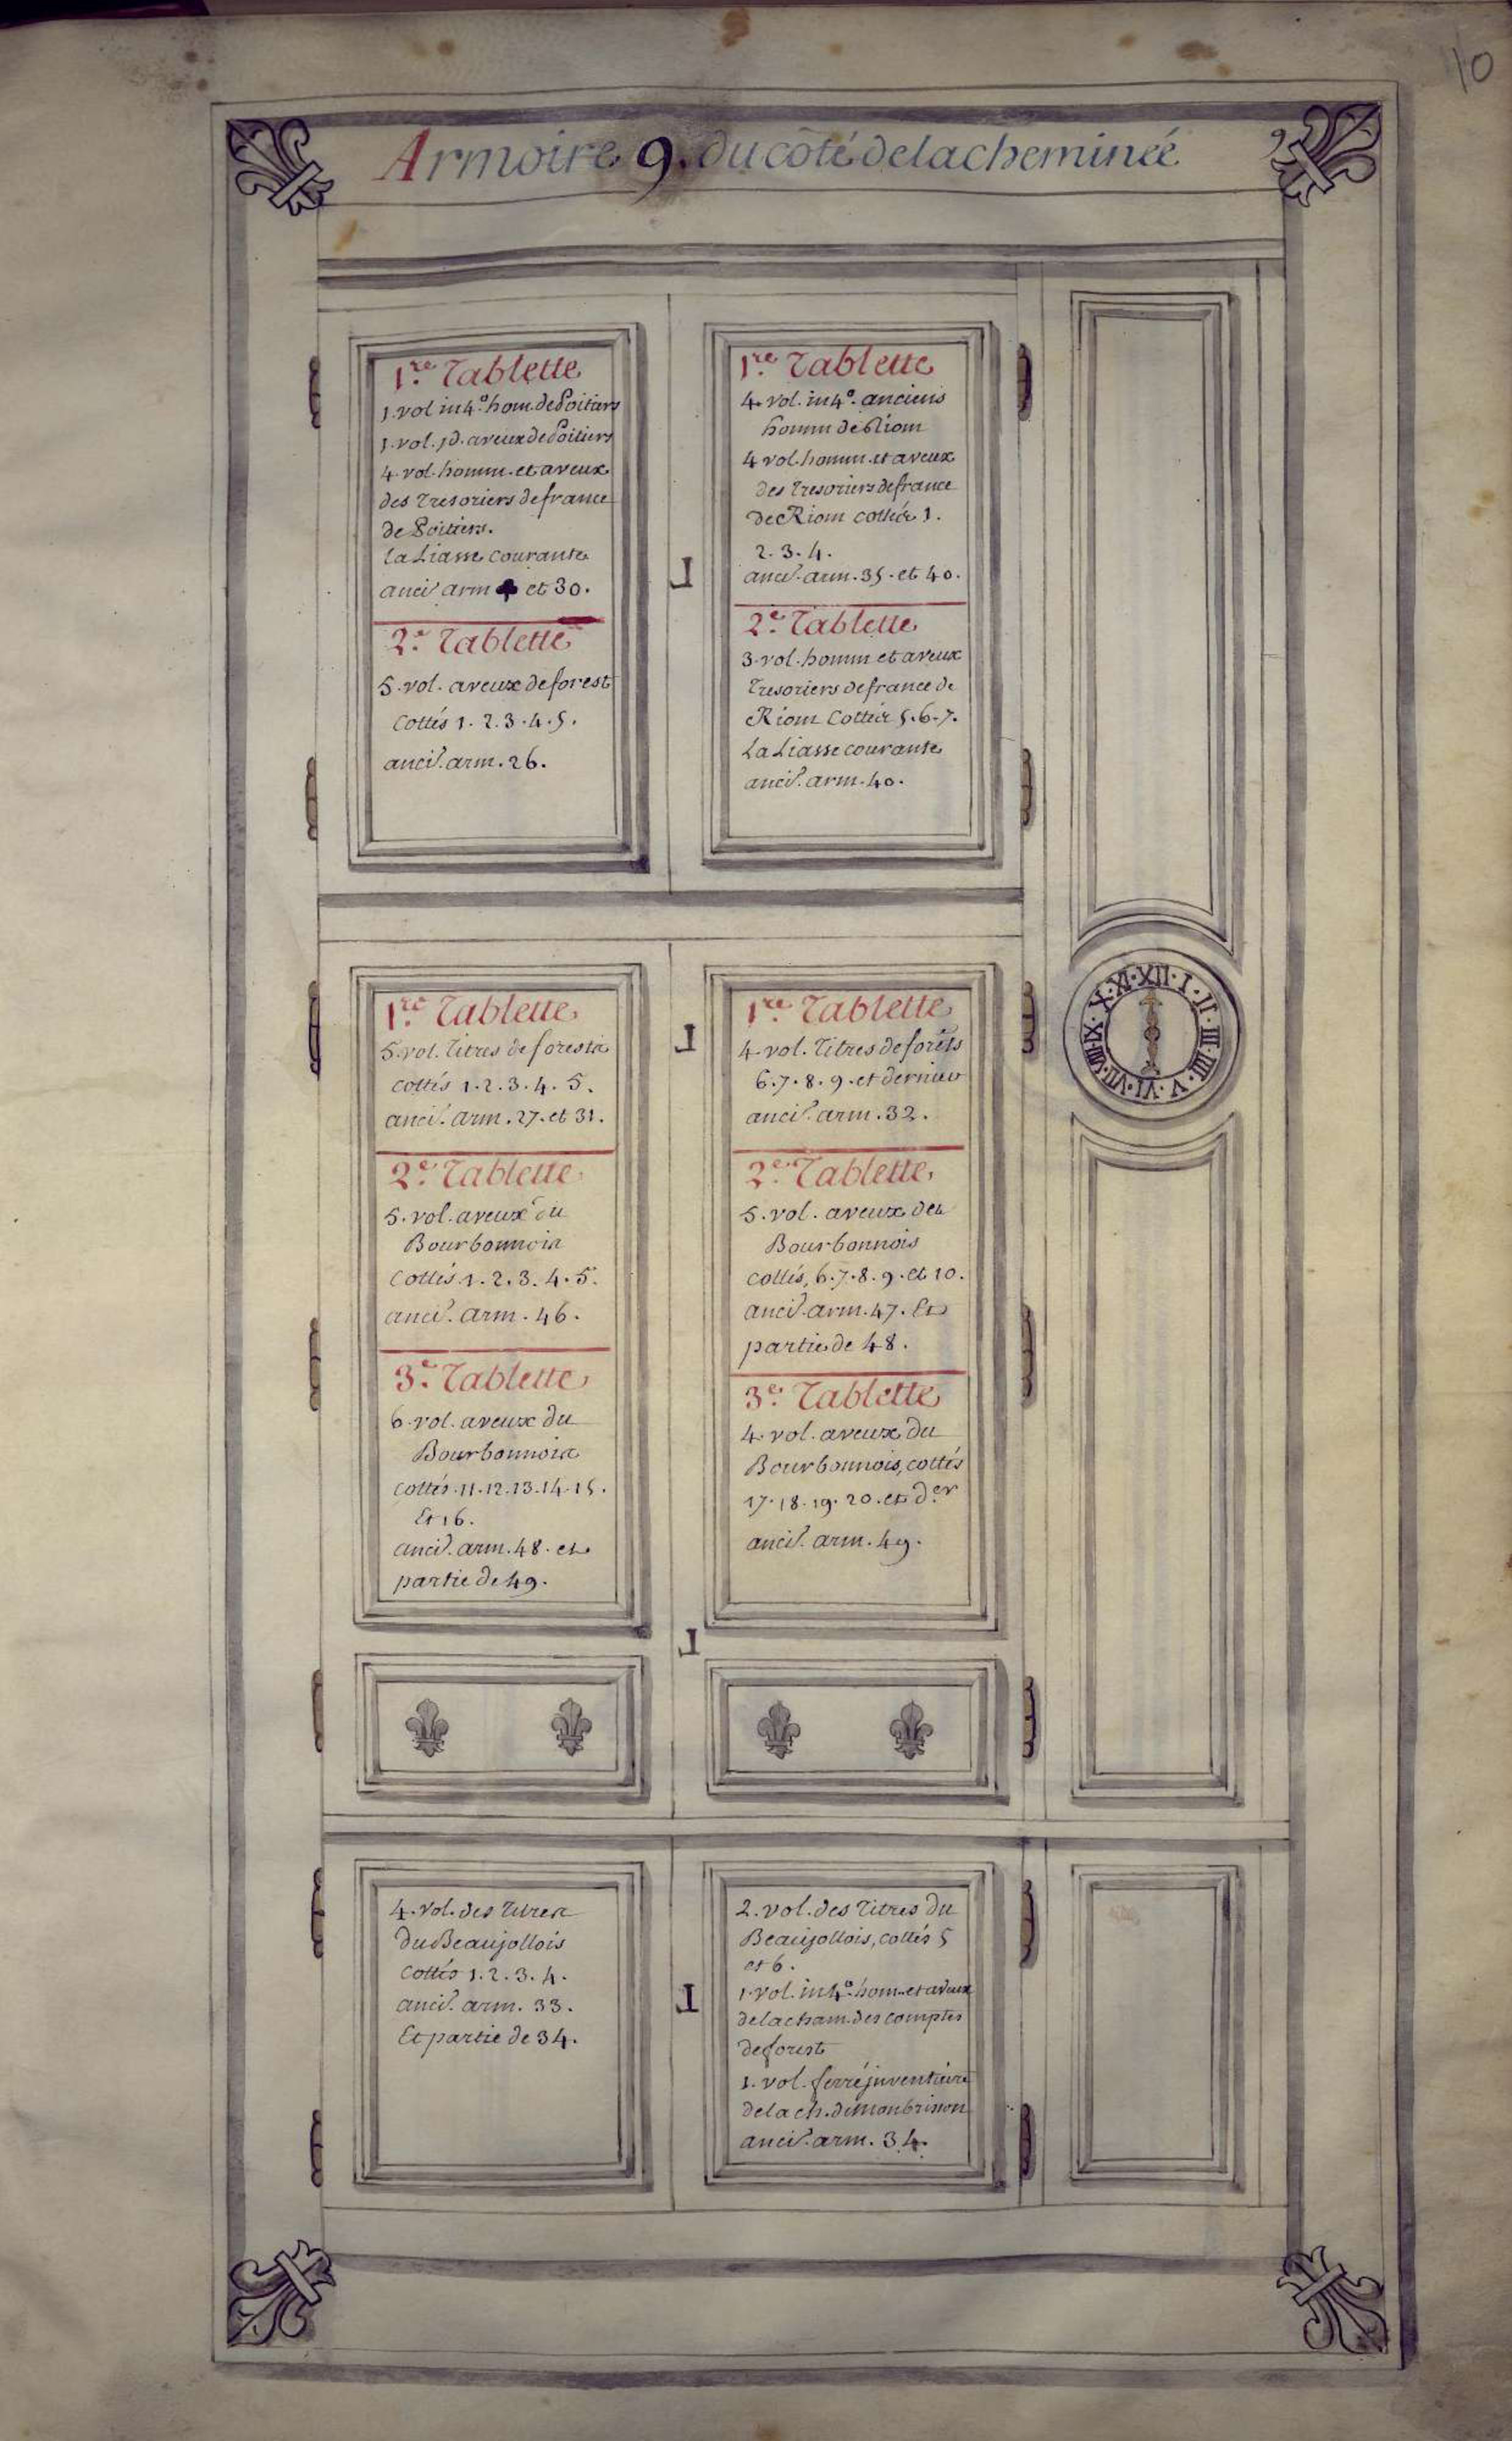 10
Armoire 9. du côté de la cheminée
9
1.re Tablette
1. vol in 4.o hom. de Poitiers
1. vol. jd. aveux de Poitiers
4. vol. homm. et aveux
des Tresoriers de france
de Poitiers.
la Liasse courante
anci. arm ♣ et 30.
2.e Tablette
5. vol. aveux de forest
Cottés 1. 2. 3. 4. 5.
anci. arm. 26.
1.re Tablette
4. vol. in 4.o anciens
homm de Riom
4 vol. homm. et aveux
des Tresoriers de france
de Riom cottés 1.
2. 3. 4.
anci. arm. 35. et 40.
2.e Tablette
3. vol. homm et aveux
Tresoriers de france de
Riom Cottés 5. 6. 7.
La Liasse courante
anci. arm. 40.
1.re Tablette
5. vol. Titres de forests
cottés 1. 2. 3. 4. 5.
anci. arm. 27. et 31.
2.e Tablette
5. vol. aveux du
Bourbonnois
Cottés 1. 2. 3. 4. 5.
anci. arm. 46.
3.e Tablette
6. vol. aveux du
Bourbonnois
cottés. 11. 12. 13. 14. 15.
Et 16.
anci. arm. 48. et
partie de 49.
1.re Tablette
4. vol. Titres de forêts
6. 7. 8. 9. et dernier
anci. arm. 32.
2.e Tablette
5. vol. aveux de
Bourbonnois
cottés, 6. 7. 8. 9. et 10.
anci. arm. 47. Et
partie de 48.
3.e Tablette
4. vol. aveux du
Bourbonnois, cottés
17. 18. 19. 20. et d.er
anci. arm. 49.
XII · I · II · III · IIII · V · VI · VII · VIII · IX · X · XI
4. Vol. des Titres
du Beaujollois
cottés 1. 2. 3. 4.
anci. arm. 33.
Et partie de 34.
2. vol. des Titres du
Beaujollois, cottés 5
et 6.
1. vol. in 4.o hom. et aveux
de la cham. des comptes
de forest
1. vol. ferré jnventaire
de la ch. de monbrison
anci. arm. 34.